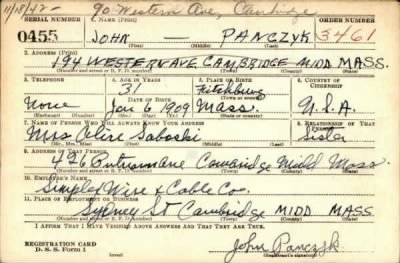 11/18/42- 90 Western Ave, Cambridge
SERIAL NUMBER 1. NAME (Print) ORDER NUMBER
0455 JOHN — PANCZYK 3461
(First) (Middle) (Last)
2. ADDRESS (Print)
194 WESTERN AVE CAMBRIDGE MIDD MASS.
(Number and street or R. F. D. number) (Town) (County) (State)
3. TELEPHONE 4. AGE IN YEARS 5. PLACE OF BIRTH 6. COUNTRY OF CITIZENSHIP
31 Fitchburg
DATE OF BIRTH (Town or county)
None Jan 6 1909 Mass. U.S.A.
(Exchange) (Number) (Mo.) (Day) (Yr.) (State or country)
7. NAME OF PERSON WHO WILL ALWAYS KNOW YOUR ADDRESS 8. RELATIONSHIP OF THAT PERSON
Mrs Sister
(Mr., Mrs., Miss) (First) (Middle) (Last)
9. ADDRESS OF THAT PERSON
496 Putnam Ave Cambridge Midd Mass.
(Number and street or R. F. D. number) (Town) (County) (State)
10. EMPLOYER'S NAME
Simplex Wire & Cable Co.
11. PLACE OF EMPLOYMENT OR BUSINESS
Sydney St Cambridge MIDD MASS
(Number and street or R. F. D. number) (Town) (County) (State)
I AFFIRM THAT I HAVE VERIFIED ABOVE ANSWERS AND THAT THEY ARE TRUE.
REGISTRATION CARD
D. S. S. Form 1 John Panczyk
(Registrant's signature)